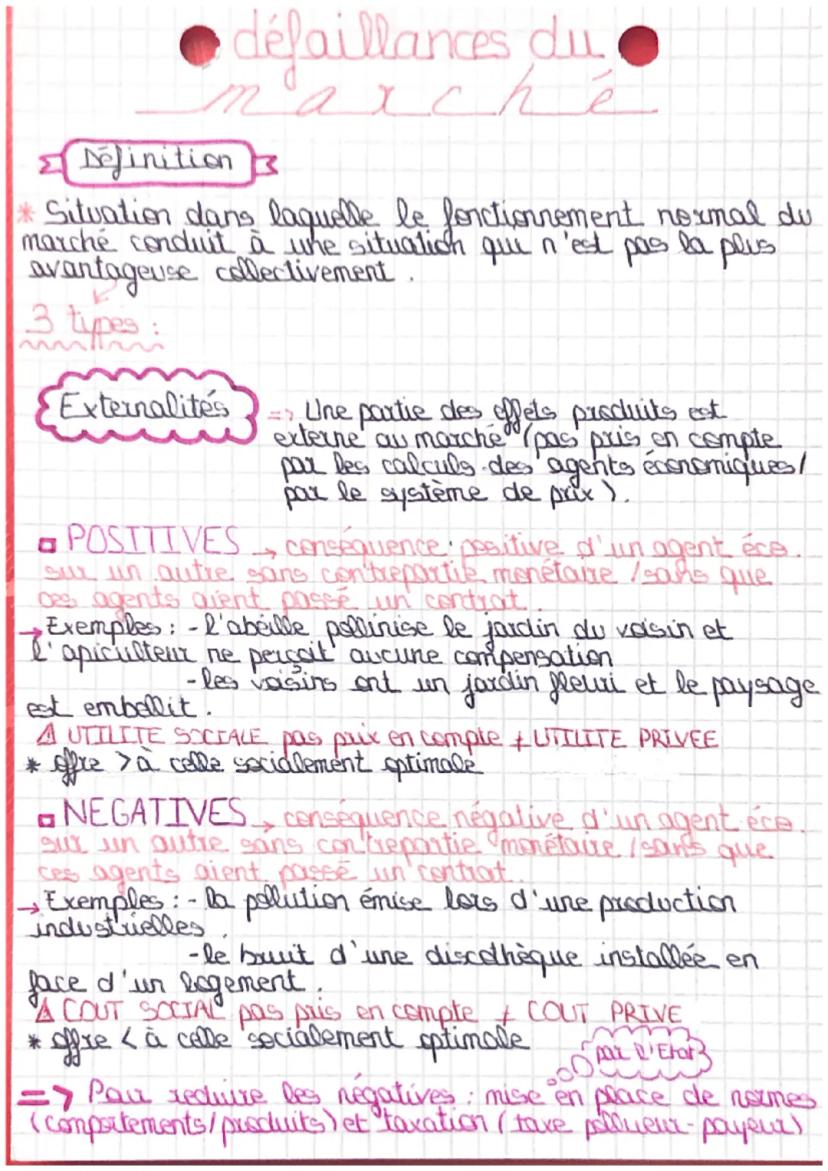 défaillances du
marché
Définition
* Situation dans laquelle le fonctionnement normal du
marché conduit à une situation qui n'est pas la plus
avantageuse collectivement.
3 types :
Externalités
=> Une partie des effets produits est
externe au marché (pas pris en compte
par les calculs des agents économiques/
par le système de prix).
POSITIVES → conséquence positive d'un agent éco.
sur un autre sans contrepartie monétaire /sans que
ces agents aient passé un contrat.
→ Exemples : - l'abeille pollinise le jardin du voisin et
l'apiculteur ne perçoit aucune compensation
- les voisins ont un jardin fleuri et le paysage
est embellit.
⚠ UTILITE SOCIALE pas prix en compte ≠ UTILITE PRIVEE
* offre > à celle socialement optimale
NEGATIVES → conséquence négative d'un agent éco.
sur un autre sans contrepartie monétaire /sans que
ces agents aient passé un contrat.
→ Exemples : - la pollution émise lors d'une production
industrielles.
- le bruit d'une discothèque installée en
face d'un logement.
⚠ COUT SOCIAL pas pris en compte ≠ COUT PRIVE
* offre < à celle socialement optimale
par l'Etat
=> Pour reduire les négatives : mise en place de normes
(comportements/produits) et taxation (taxe pollueur-payeur)